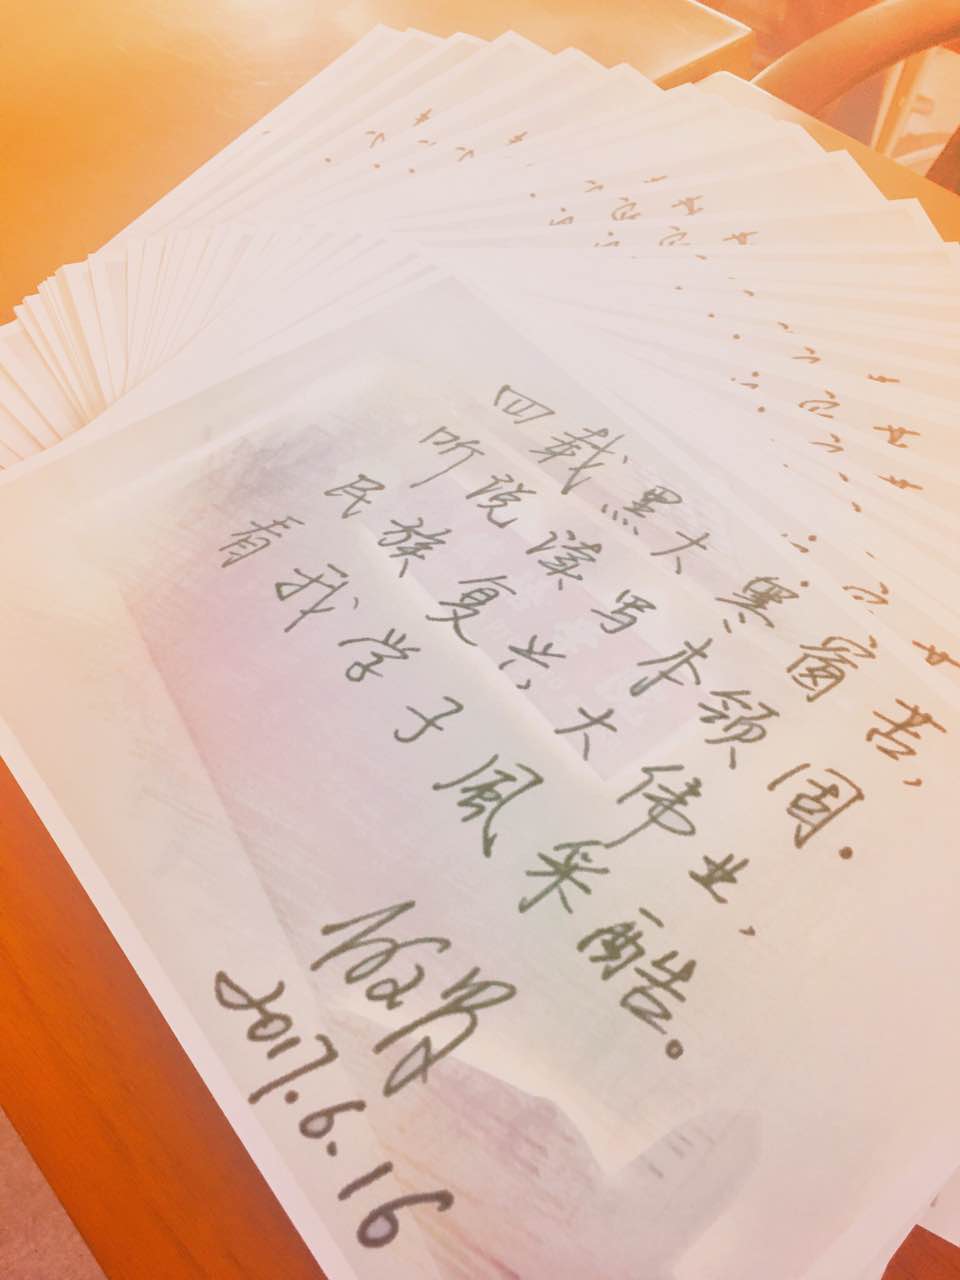 四载黑大寒窗苦，
听说读写本领固.
民族复兴大伟业，
看我学子風采酷。
2017.6.16